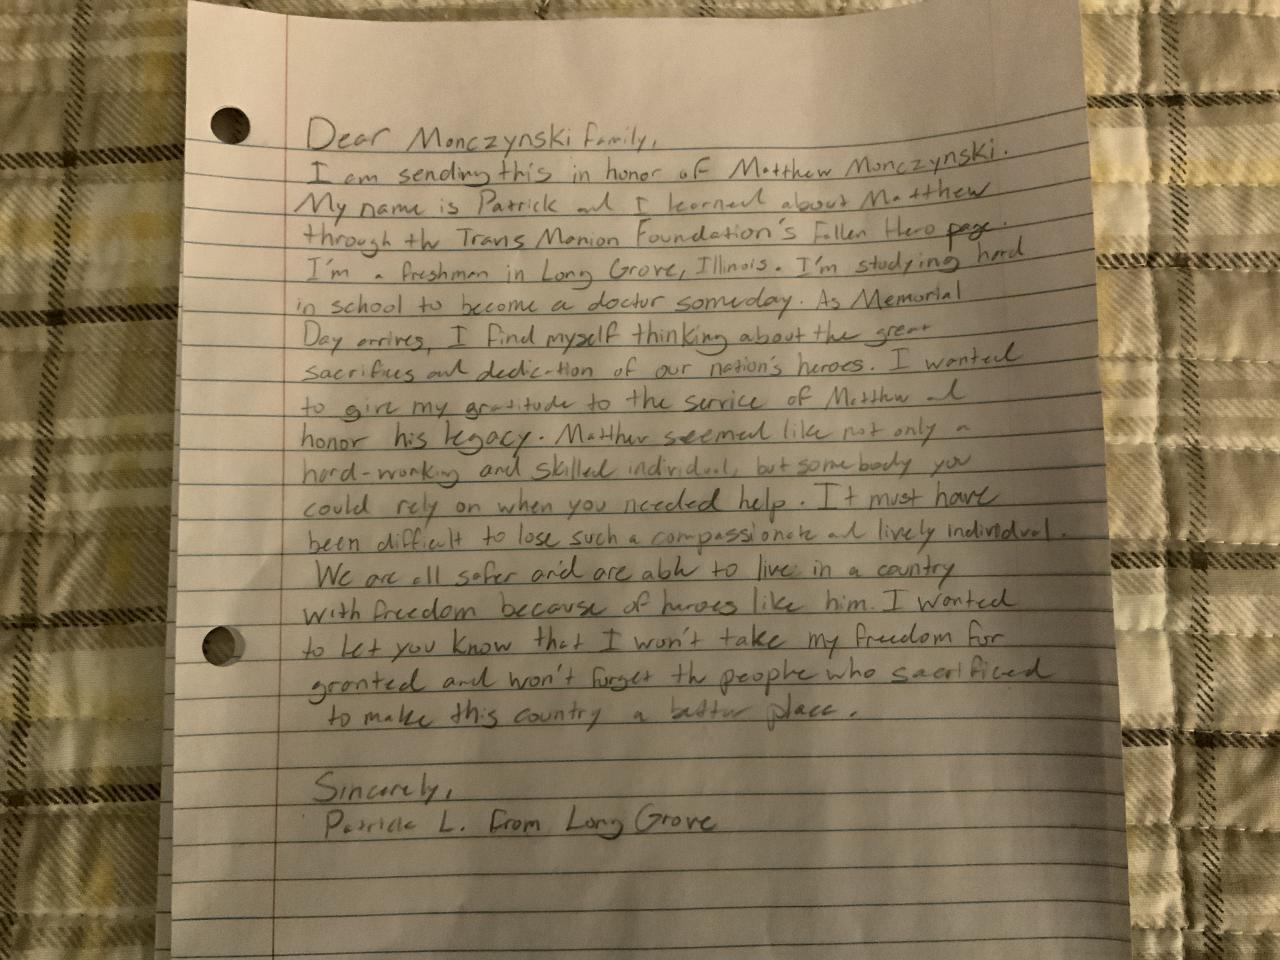 Dear Monczynski family,
I am sending this in honor of Matthew Monczynski.
My name is Patrick and I learned about Matthew
through the Trans Manion Foundation's Fallen Hero page.
I'm a freshman in Long Grove, Illinois. I'm studying hard
in school to become a doctor someday. As Memorial
Day arrives, I find myself thinking about the great
sacrifices and dedication of our nation's heroes. I wanted
to give my gratitude to the service of Matthew and
honor his legacy. Matthew seemed like not only a
hard-working and skilled individual, but somebody you
could rely on when you needed help. It must have
been difficult to lose such a compassionate and lively individual.
We are all safer and are able to live in a country
with freedom because of heroes like him. I wanted
to let you know that I won't take my freedom for
granted and won't forget the people who sacrificed
to make this country a better place.
Sincerely,
Patrick L. From Long Grove